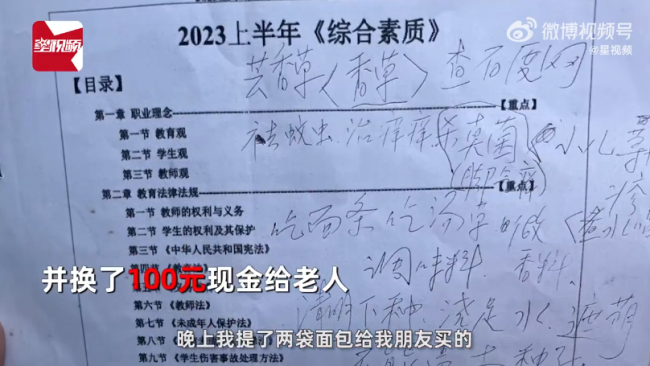 星视频
微博视频号
@星视频
2023上半年《综合素质》
芸香草（香草）查百度网
【目录】
第一章 职业理念【重点】
第一节 教育观
祛蚊虫.治痒痒杀真菌 小儿
第二节 学生观
脚气
第三节 教师观
疹
第二章 教育法律法规【重点】
第一节 教师的权利与义务
吃面条吃汤
第二节 学生的权利及其保护
第三节 《中华人民共和国宪法》
调味料.香料.
并换了100元现金给老人
第六节 《教师法》
清明下种.浇足水.遮荫
第七节 《未成年人保护法》
第八节
晚上我提了两袋面包给我朋友买的
第九节 《学生伤害事故处理方法》